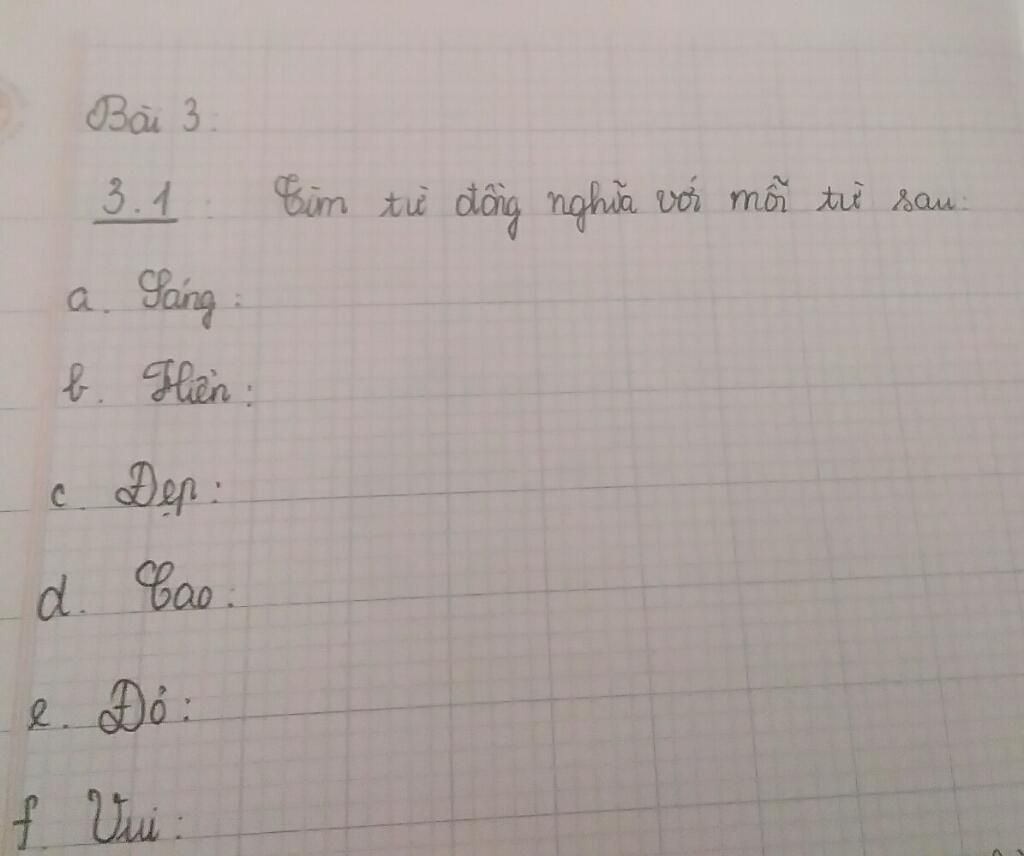 Bài 3:
3.1: Tìm từ đồng nghĩa với mỗi từ sau:
a. Sáng:
b. Hiền:
c. Đẹp:
d. Cao:
e. Đỏ:
f Vui: